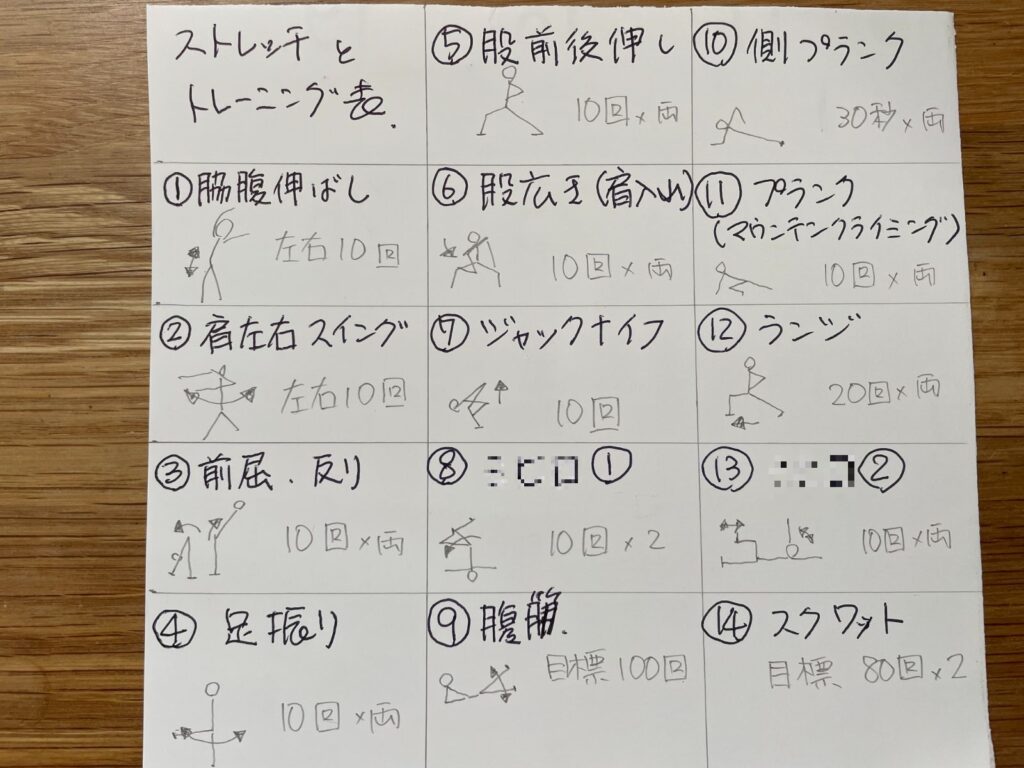 ストレッチと
トレーニング表.
①脇腹伸ばし
左右10回
②肩左右スイング
左右10回
③前屈.反り
10回×両
④足振り
10回×両
⑤股前後伸し
10回×両
⑥股広き(肩入れ)
10回×両
⑦ジャックナイフ
10回
⑧ ①
10回×2
⑨腹筋.
目標100回
⑩側プランク
30秒×両
⑪プランク
(マウンテンクライミング)
10回×両
⑫ランジ
20回×両
⑬ ②
10回×両
⑭スクワット
目標 80回×2